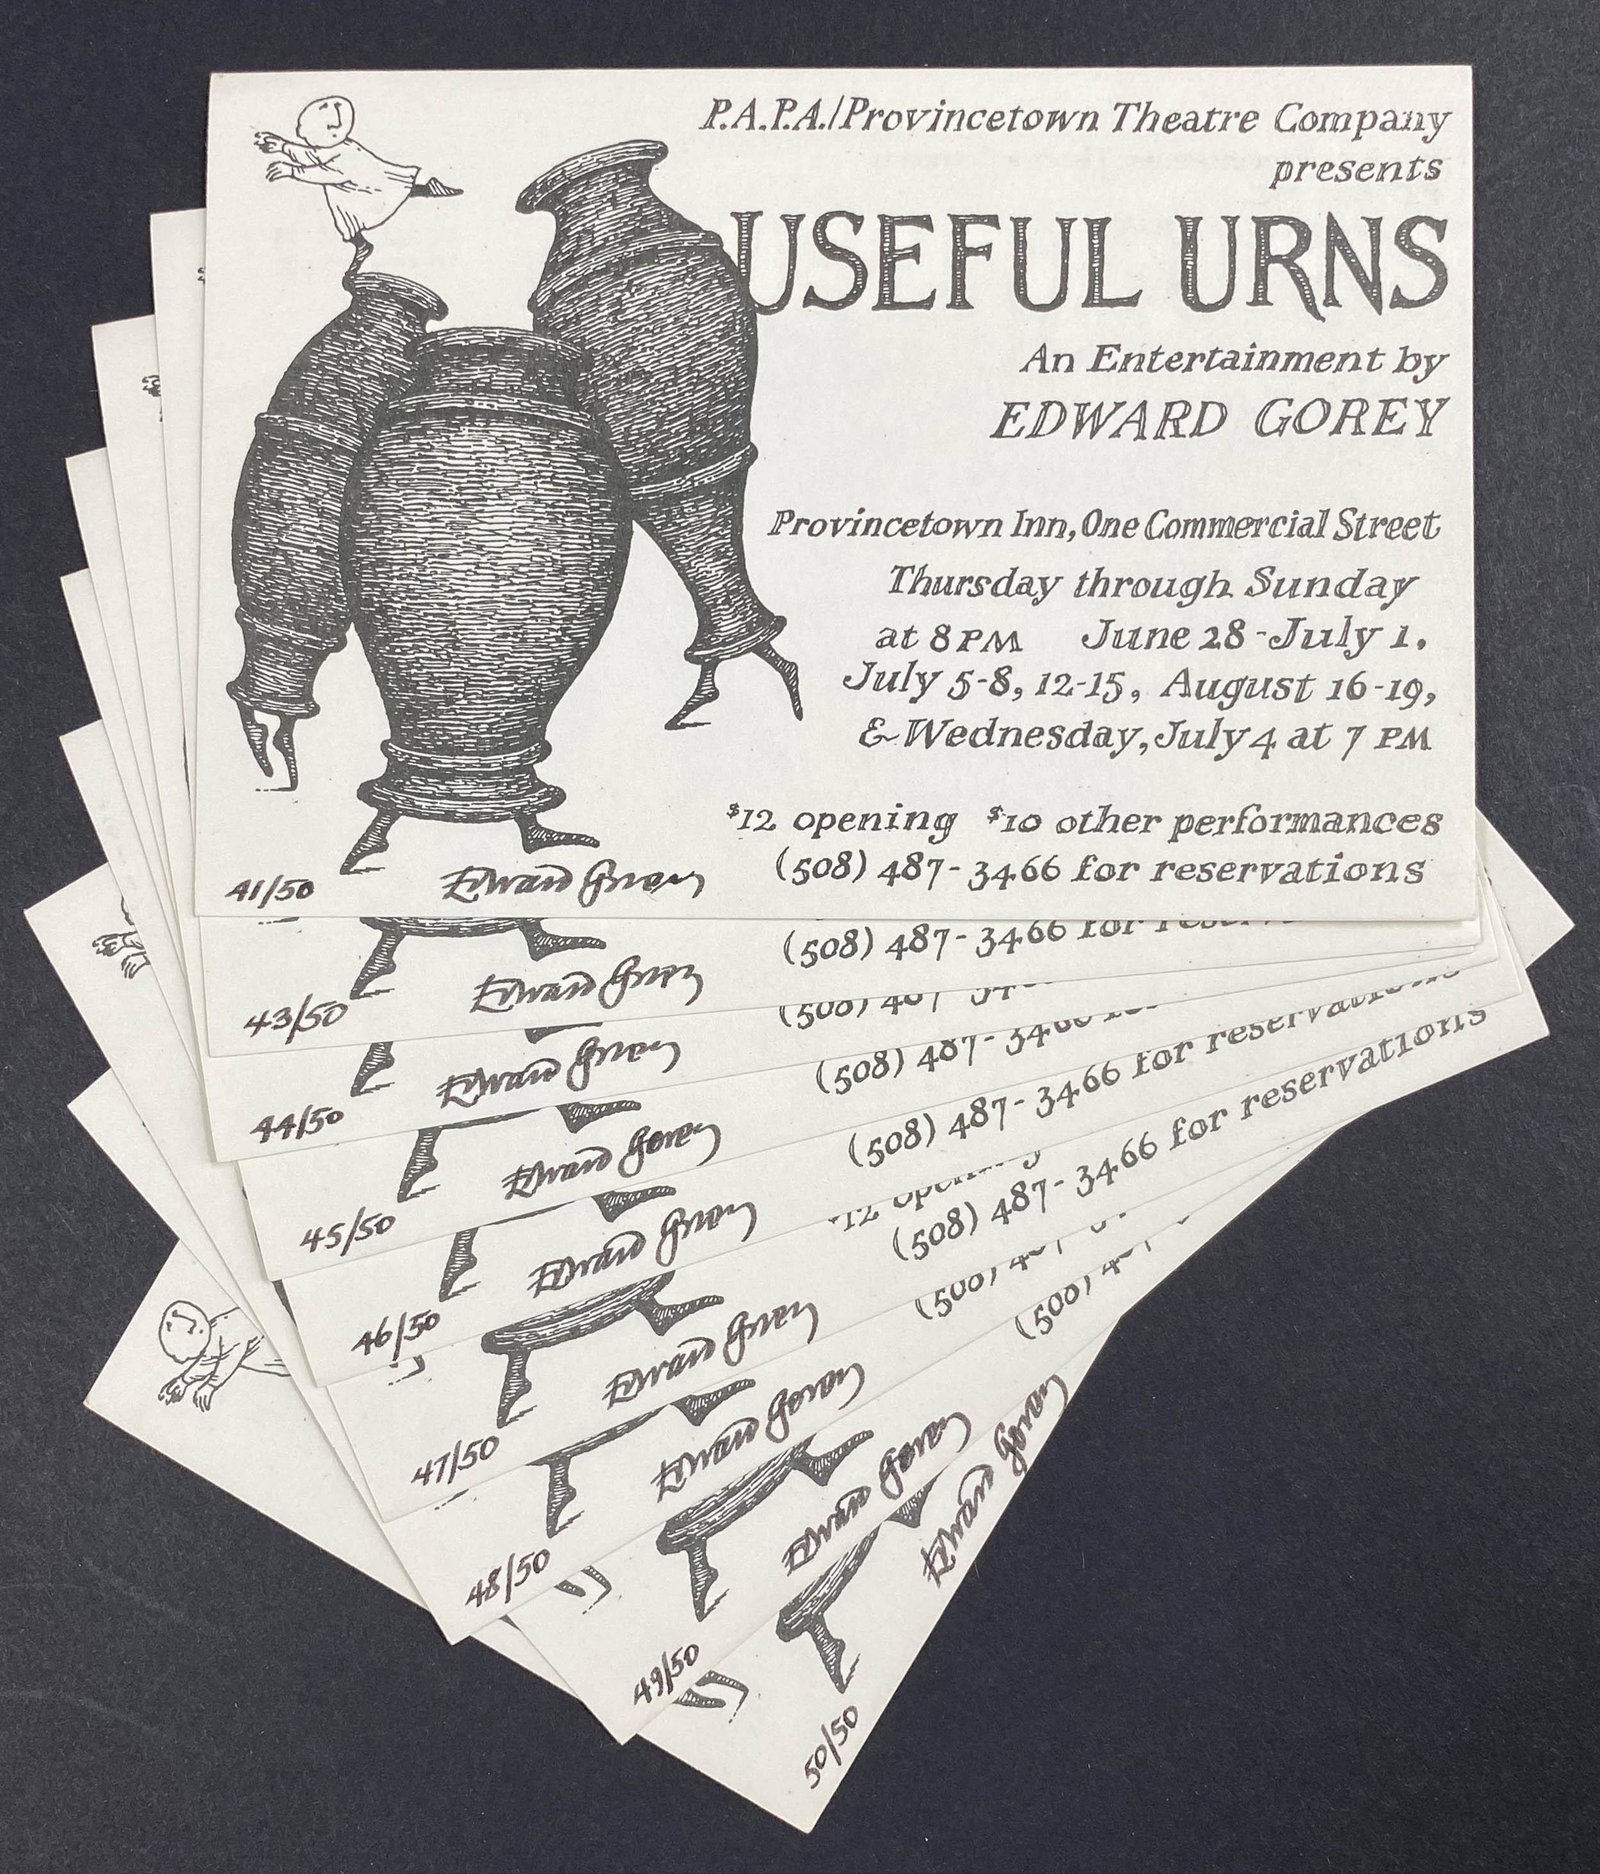 P.A.P.A./Provincetown Theatre Company
presents
USEFUL URNS
An Entertainment by
EDWARD GOREY
Provincetown Inn, One Commercial Street
Thursday through Sunday
at 8 PM June 28 - July 1,
July 5-8, 12-15, August 16-19,
& Wednesday, July 4 at 7 PM
$12 opening $10 other performances
(508) 487-3466 for reservations
41/50 Edward Gorey
(508) 487-3466 for
43/50 Edward Gorey
(508) 487
44/50 Edward Gorey
(508) 487-3466
45/50 Edward Gorey
(508) 487-3466 for reservations
46/50 Edward Gorey
$12 opening
(508) 487-3466 for reservations
47/50 Edward Gorey
(508)
48/50 Edward Gorey
(508)
49/50 Edward Gorey
50/50 Edward Gorey